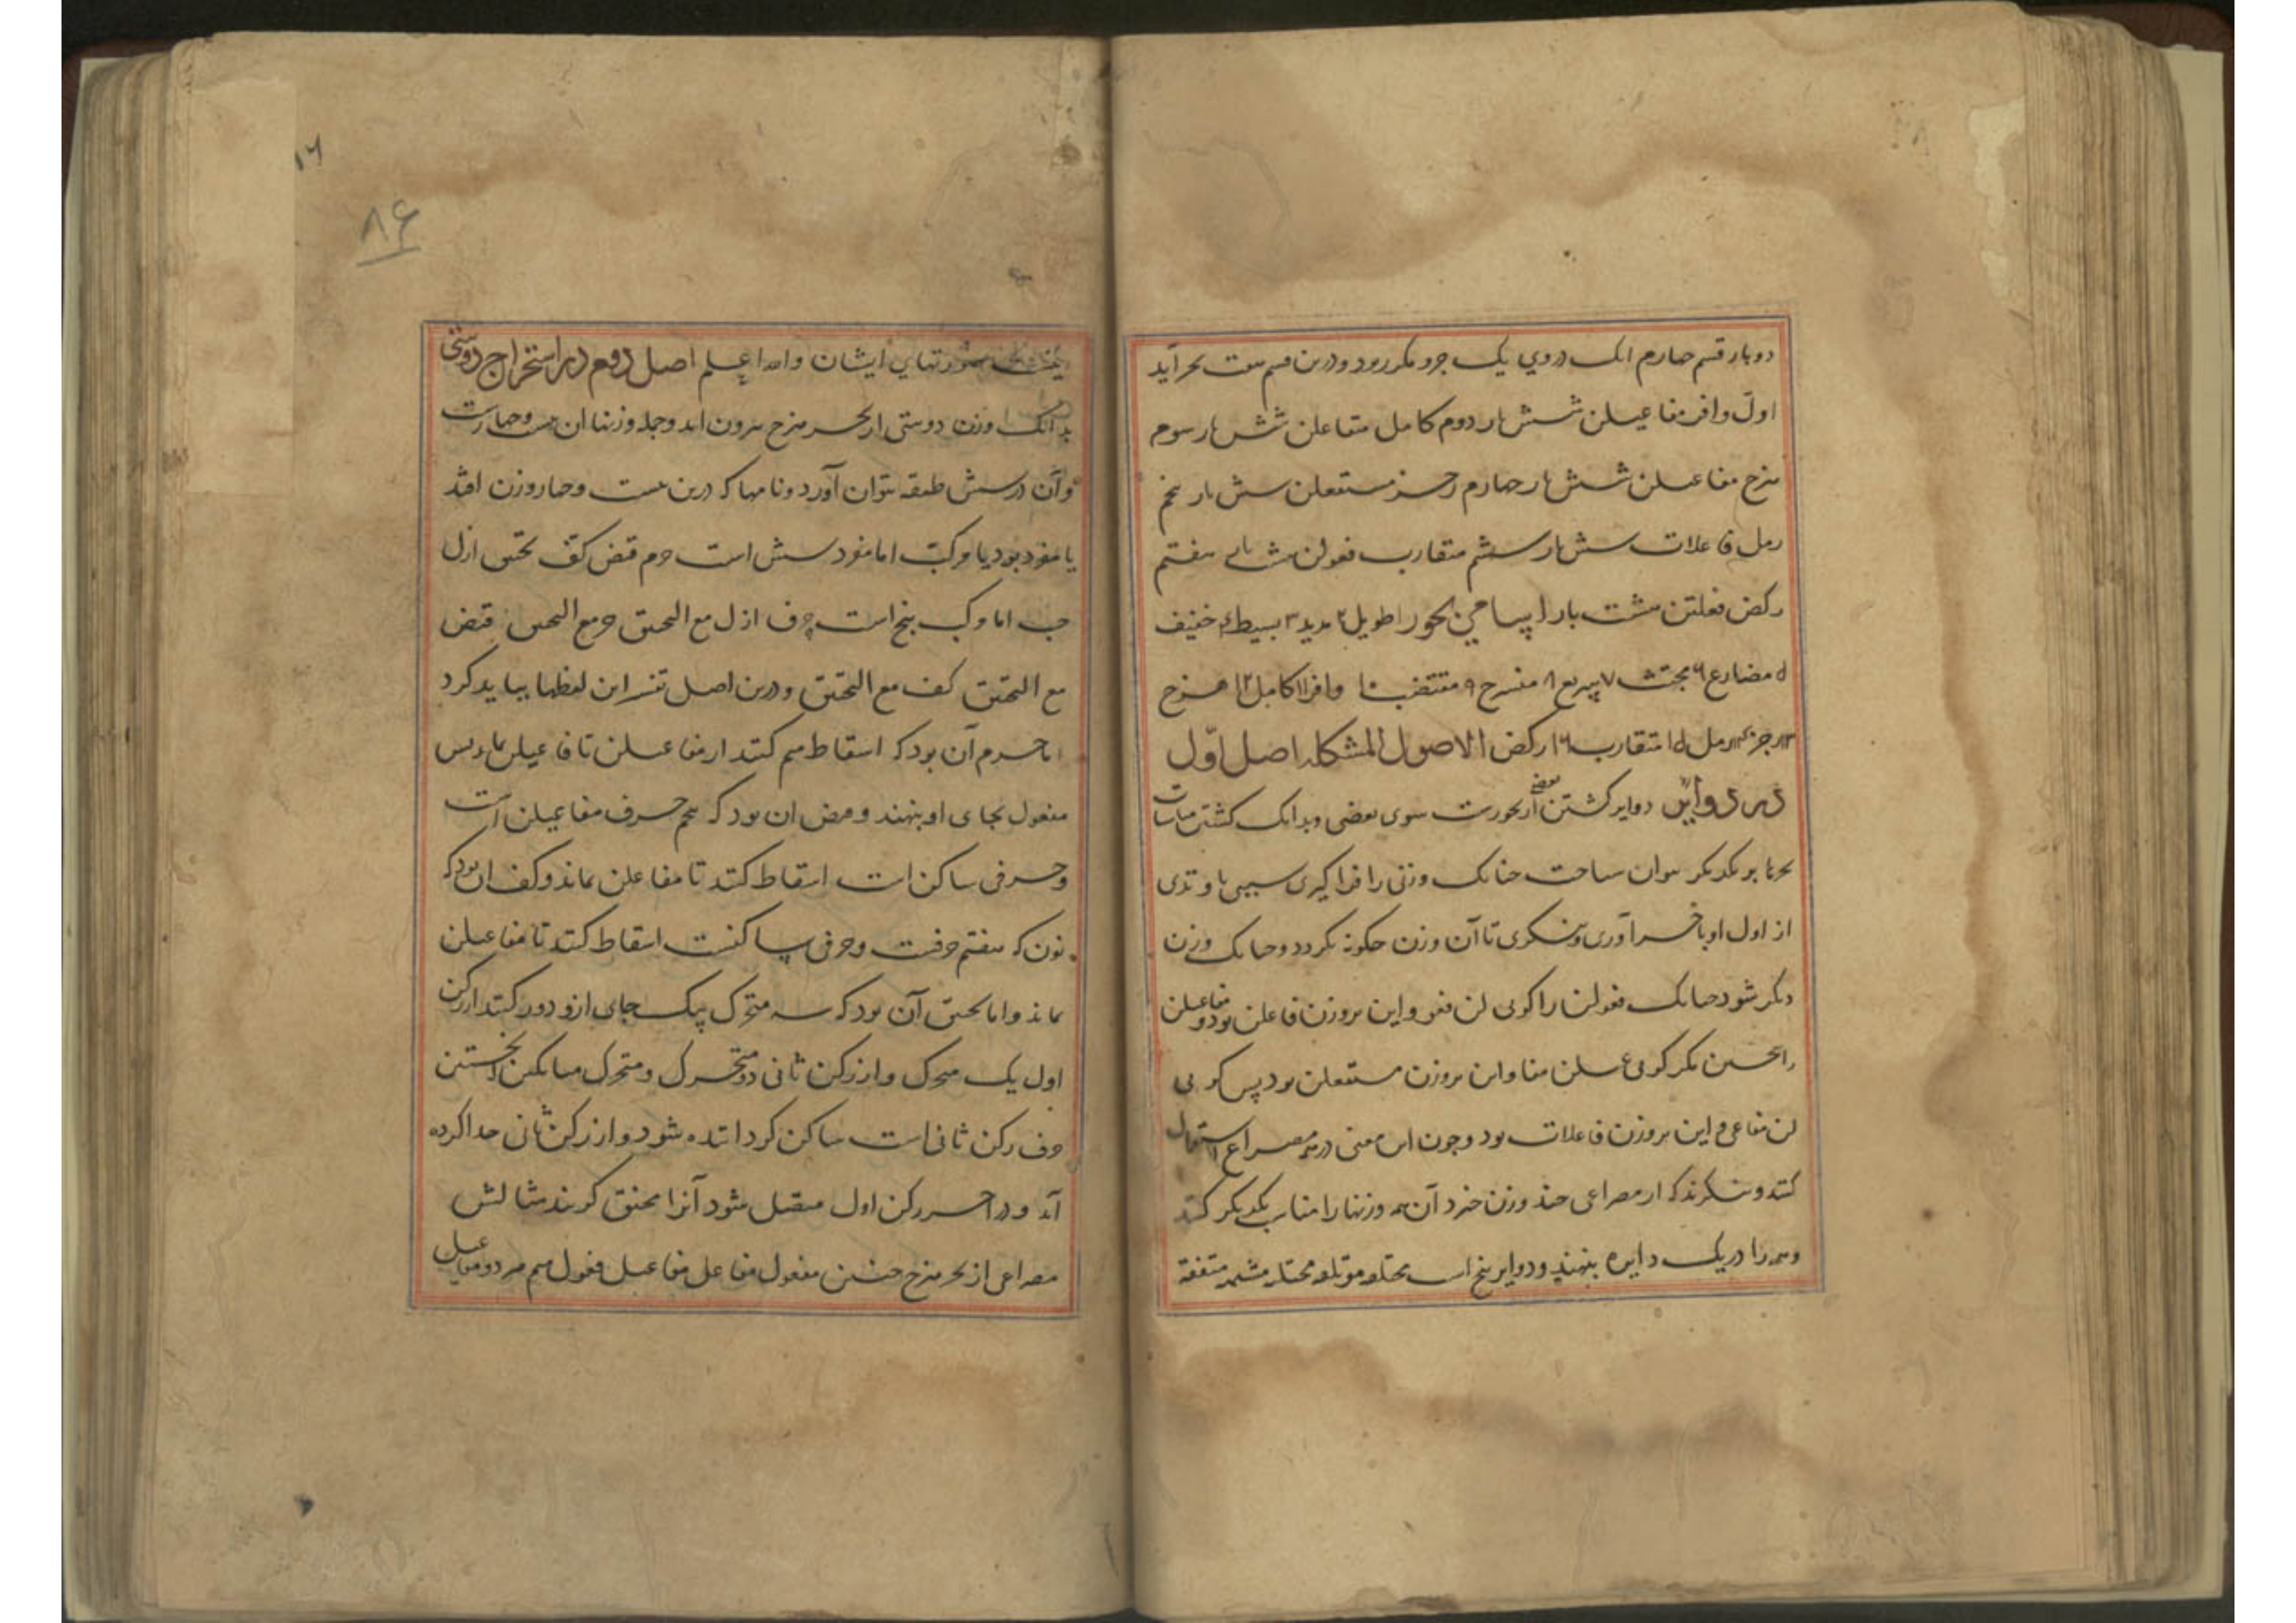 دوبار قسم چهارم انک دروی یک جزو مکرر بود ودرین قسم هفت بحر آید
اول وافر مفاعیلن شش بار دوم کامل متفاعلن شش بار سوم
هزج مفاعیلن شش بار چهارم رجز مستفعلن شش بار پنجم
رمل فاعلات شش بار ششم متقارب فعولن هشت بار هفتم
رکض فعلتن هشت بار اسامی بحور ۱ طویل ۲ مدید ۳ بسیط ۴ خفیف
۵ مضارع ۶ مجتث ۷ سریع ۸ منسرح ۹ مقتضب ۱۰ وافر ۱۱ کامل ۱۲ هزج
۱۳ رجز ۱۴ رمل ۱۵ متقارب ۱۶ رکض الاصول المشکله اصل اوّل
در دوایر دوایر کشتن بعضی از بحورست سوی بعضی وبدانک کشتن
بحرها بر یکدیکر توان ساخت چنانک وزنی را فرا کیری سببی یا وتدی
از اول او باخر آوری وبنکری تا آن وزن چکونه کردد وچنانک وزن
دیکر شود چنانک فعولن را کویی لن فعو واین بروزن فاعلن بود ومفاعیلن
را همچنین مکر کویی عیلن مفا واین بروزن مستفعلن بود پس کویی
لن مفاعی واین بروزن فاعلات بود وچون این معنی در هر مصراع استعمال
کنند وبنکرند که از مصراعی چند وزن خیزد آن همه وزنها را مناسب یکدیکر کنند
وهمه را در یک دایره بنهند ودوایر پنج است مختلفه موتلفه مجتلبه مشتبهه متفقه
۱۶
۸۶
صورتهای ایشان والله اعلم اصل دوم در استخراج دوبیتی
بدانک وزن دوبیتی از بحر هزج بیرون اید وجمله وزنها ان بیست وچهارست
وآن در شش طبقه بتوان آورد ونامها که درین بیست وچهار وزن افتد
یا مفرد بود یا مرکب اما مفرد شش است خرم قبض کف تخنیق ازل
جب اما مرکب پنج است خرب ازل مع التخنیق جب مع التخنیق قبض
مع التخنیق کف مع التخنیق ودرین اصل تفسیر این لفظها بباید کرد
اما خرم آن بود که اسقاط میم کنند از مفاعیلن تا فاعیلن بماند پس
مفعول بجای او بنهند وقبض ان بود که پنجم حرف مفاعیلن است
وحرفی ساکن است اسقاط کنند تا مفاعلن بماند وکف ان بود که
نون که هفتم حرفست وحرفی ساکنست اسقاط کنند تا مفاعیلن
بماند واما تخنیق آن بود که سه متحرک بیک جای ازو دور کنند از رکن
اول یک متحرک واز رکن ثانی دو متحرک ومتحرک میانکین که نخستین
حرف رکن ثانی است ساکن کردانیده شود واز رکن ثانی جدا کرده
آید ودر اخر رکن اول متصل شود آنرا مخنق کویند مثالش
مصراعی از بحر هزج چنین مفعول مفاعل مفاعیل فعول میم هر دو مفاعیل